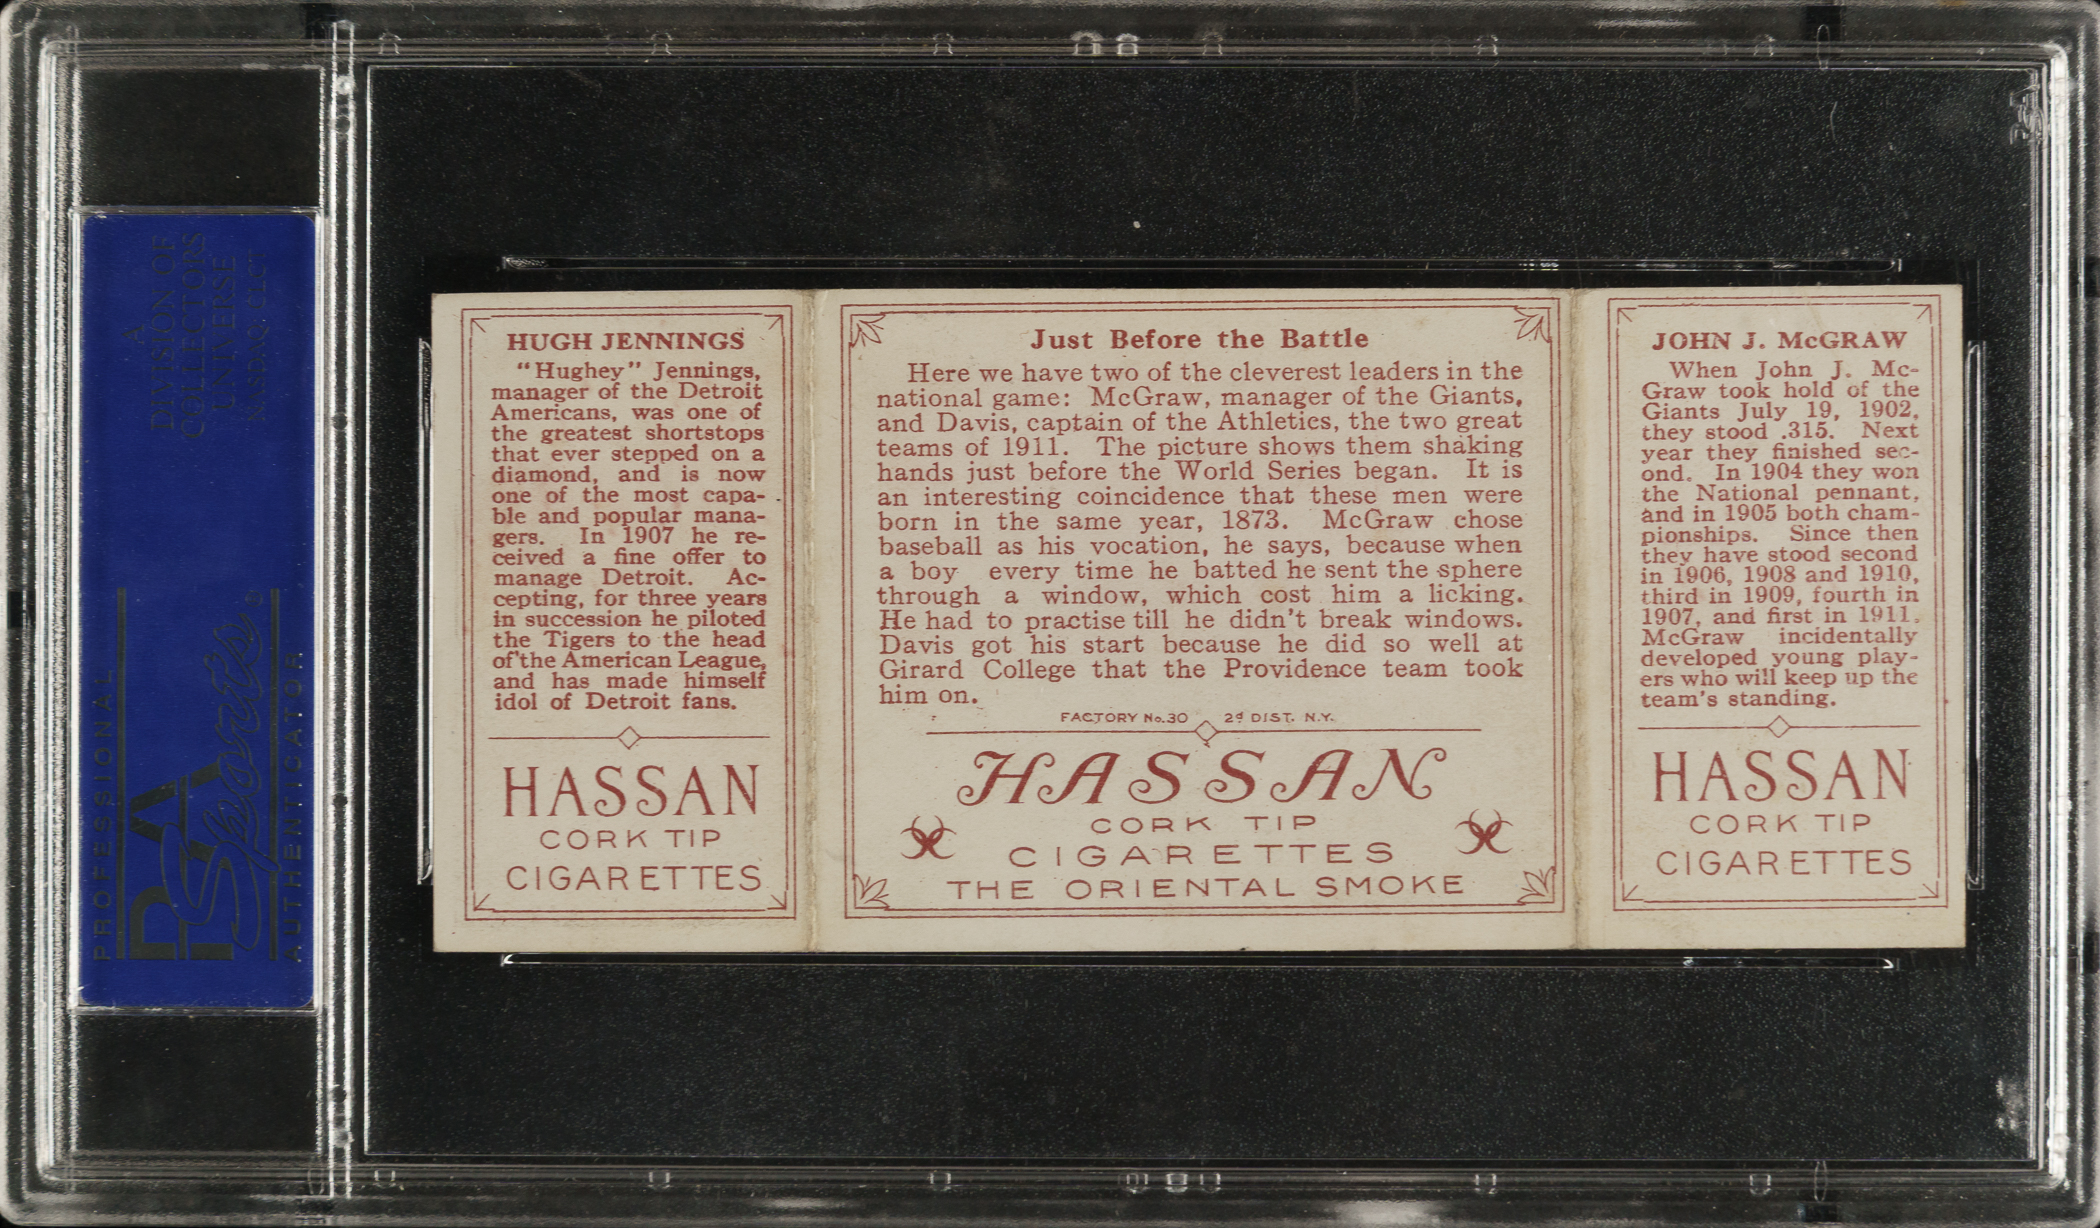 A
DIVISION OF
COLLECTORS
UNIVERSE
NASDAQ: CLCT
PROFESSIONAL
PSA
Sports®
AUTHENTICATOR
HUGH JENNINGS
"Hughey" Jennings,
manager of the Detroit
Americans, was one of
the greatest shortstops
that ever stepped on a
diamond, and is now
one of the most capa-
ble and popular mana-
gers. In 1907 he re-
ceived a fine offer to
manage Detroit. Ac-
cepting, for three years
in succession he piloted
the Tigers to the head
of the American League,
and has made himself
idol of Detroit fans.
HASSAN
CORK TIP
CIGARETTES
Just Before the Battle
Here we have two of the cleverest leaders in the
national game: McGraw, manager of the Giants,
and Davis, captain of the Athletics, the two great
teams of 1911. The picture shows them shaking
hands just before the World Series began. It is
an interesting coincidence that these men were
born in the same year, 1873. McGraw chose
baseball as his vocation, he says, because when
a boy every time he batted he sent the sphere
through a window, which cost him a licking.
He had to practise till he didn't break windows.
Davis got his start because he did so well at
Girard College that the Providence team took
him on.
FACTORY No. 30 2d DIST. N.Y.
HASSAN
CORK TIP
CIGARETTES
THE ORIENTAL SMOKE
JOHN J. McGRAW
When John J. Mc-
Graw took hold of the
Giants July 19, 1902,
they stood .315. Next
year they finished sec-
ond. In 1904 they won
the National pennant,
and in 1905 both cham-
pionships. Since then
they have stood second
in 1906, 1908 and 1910,
third in 1909, fourth in
1907, and first in 1911.
McGraw incidentally
developed young play-
ers who will keep up the
team's standing.
HASSAN
CORK TIP
CIGARETTES